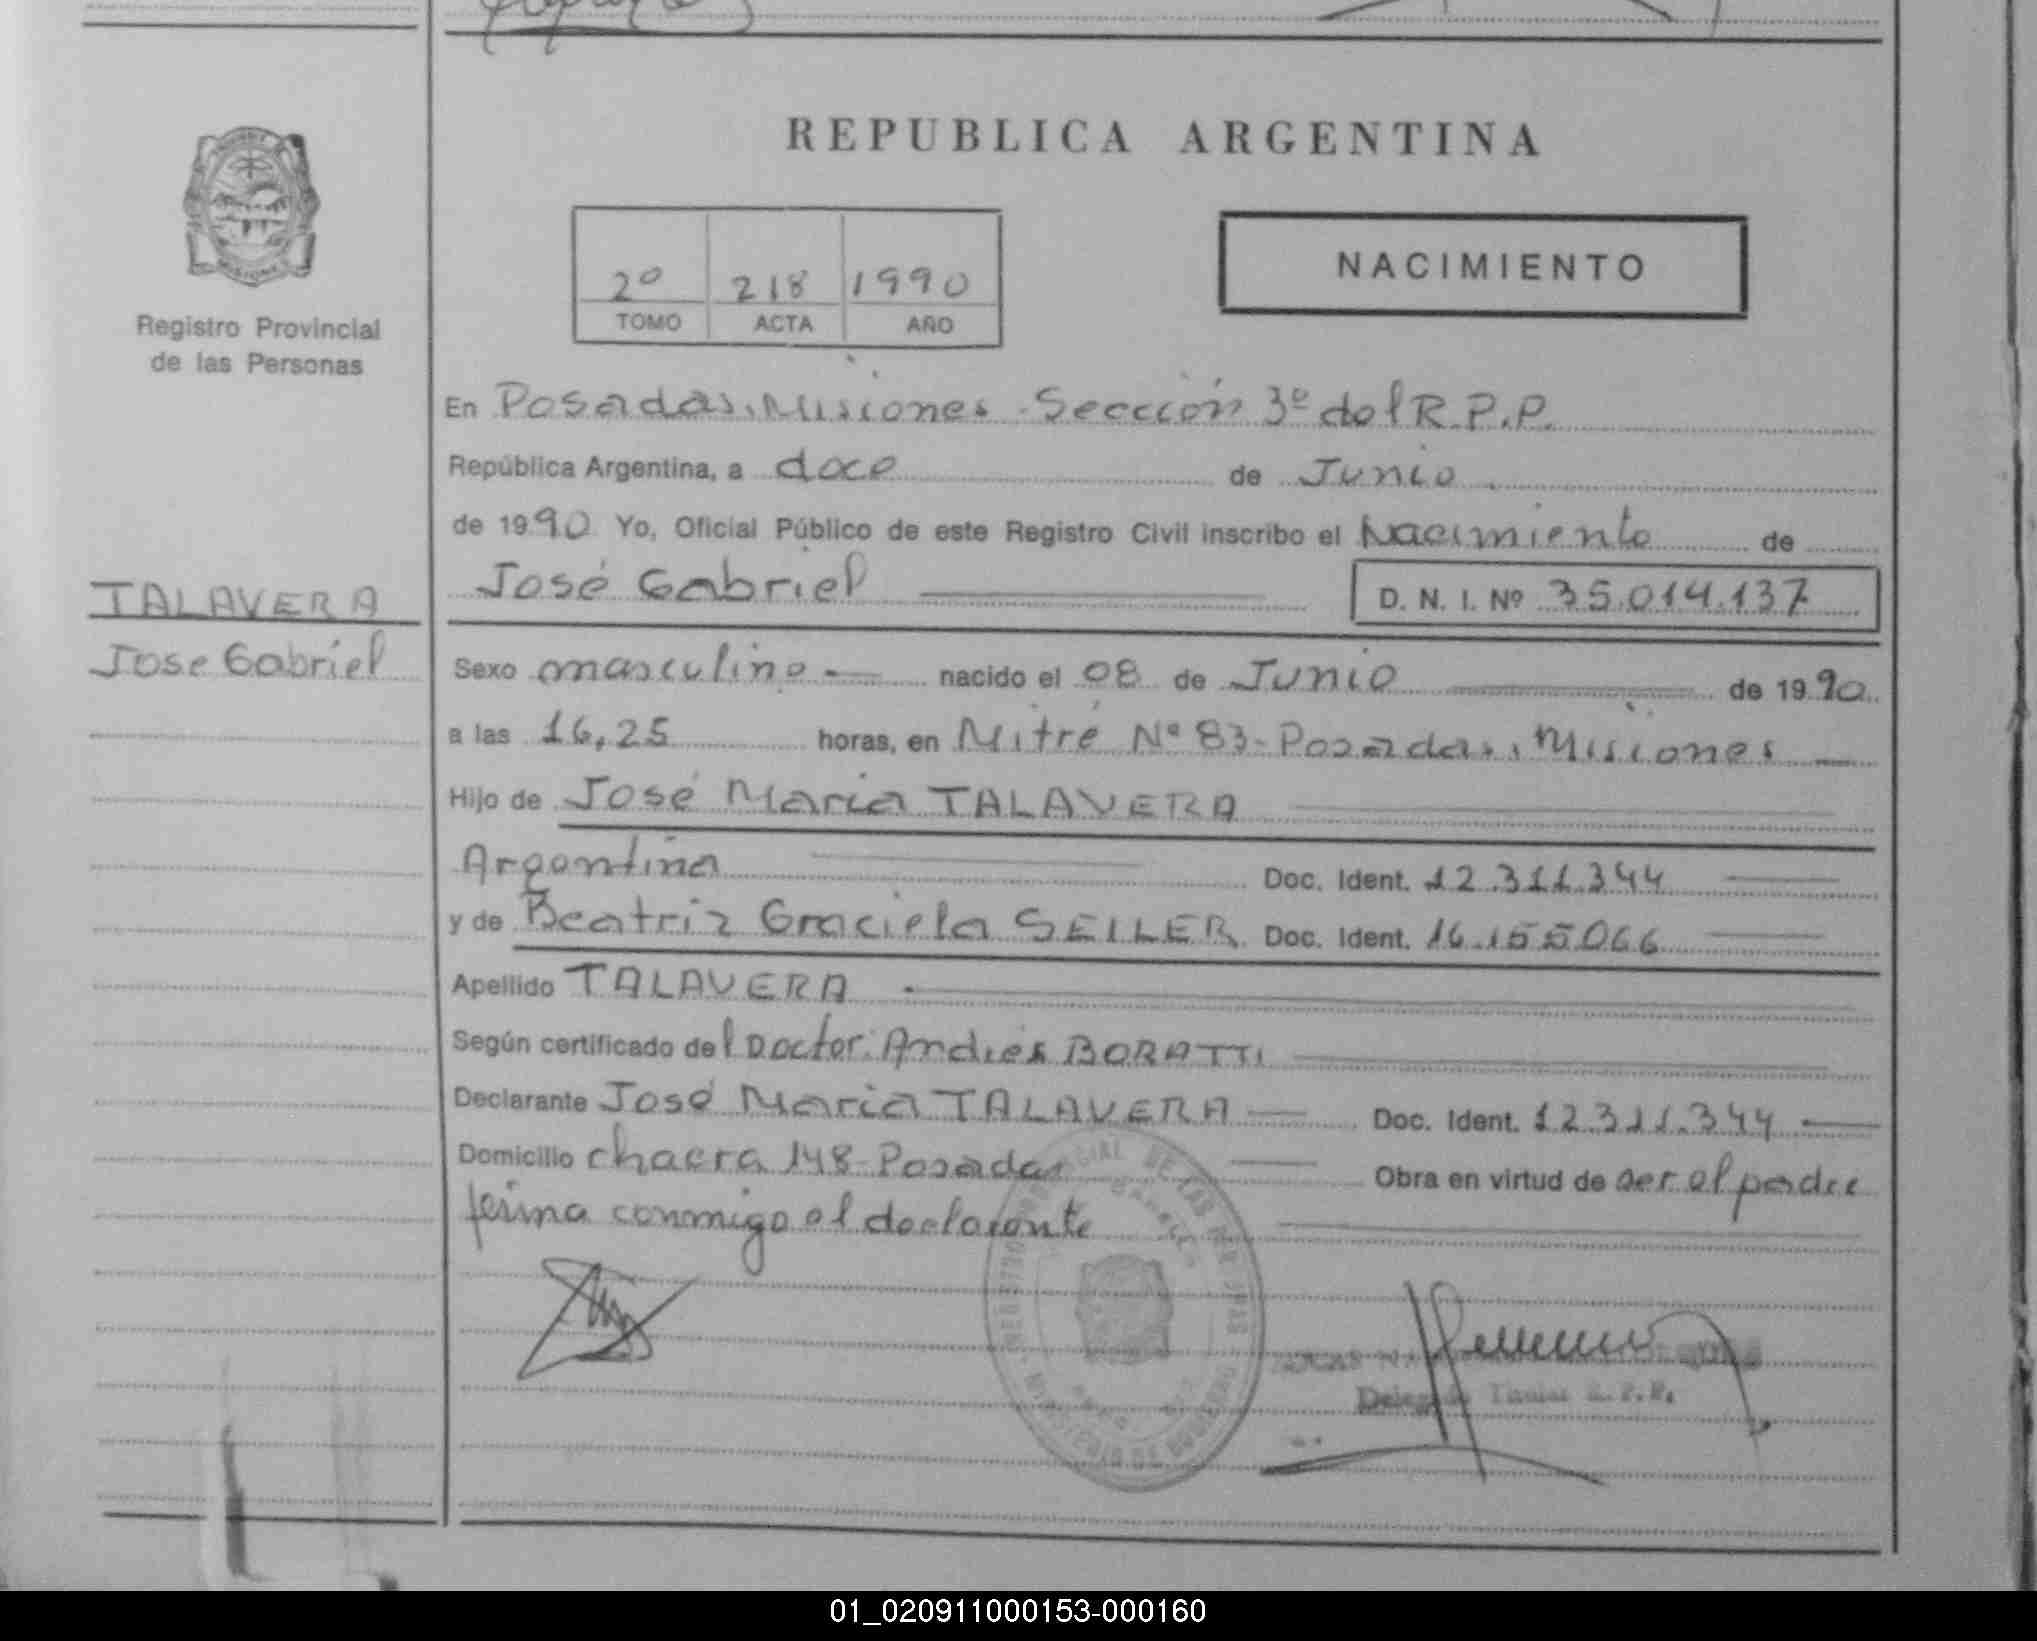 REPUBLICA ARGENTINA
2º 218 1990
TOMO ACTA AÑO
NACIMIENTO
Registro Provincial
de las Personas
TALAVERA
Jose Gabriel
En Posadas, Misiones - Sección 3º del R.P.P.
República Argentina, a doce de Junio
de 1990 Yo, Oficial Público de este Registro Civil inscribo el Nacimiento de
José Gabriel D. N. I. Nº 35.014.137
Sexo masculino nacido el 08 de Junio de 1990
a las 16,25 horas, en Mitré Nº 83 - Posadas, Misiones
Hijo de José Maria TALAVERA
Argentina Doc. Ident. 12.311.344
y de Beatriz Graciela SEILER Doc. Ident. 16.155066
Apellido TALAVERA
Según certificado del Doctor: Andrés BORATTI
Declarante José Maria TALAVERA Doc. Ident. 12.311.344
Domicilio chacra 148 - Posadas Obra en virtud de ser el padre
firma conmigo el declarante
DE LAS
MINISTERIO DE GOBIERNO
R.P.P.
01_020911000153-000160